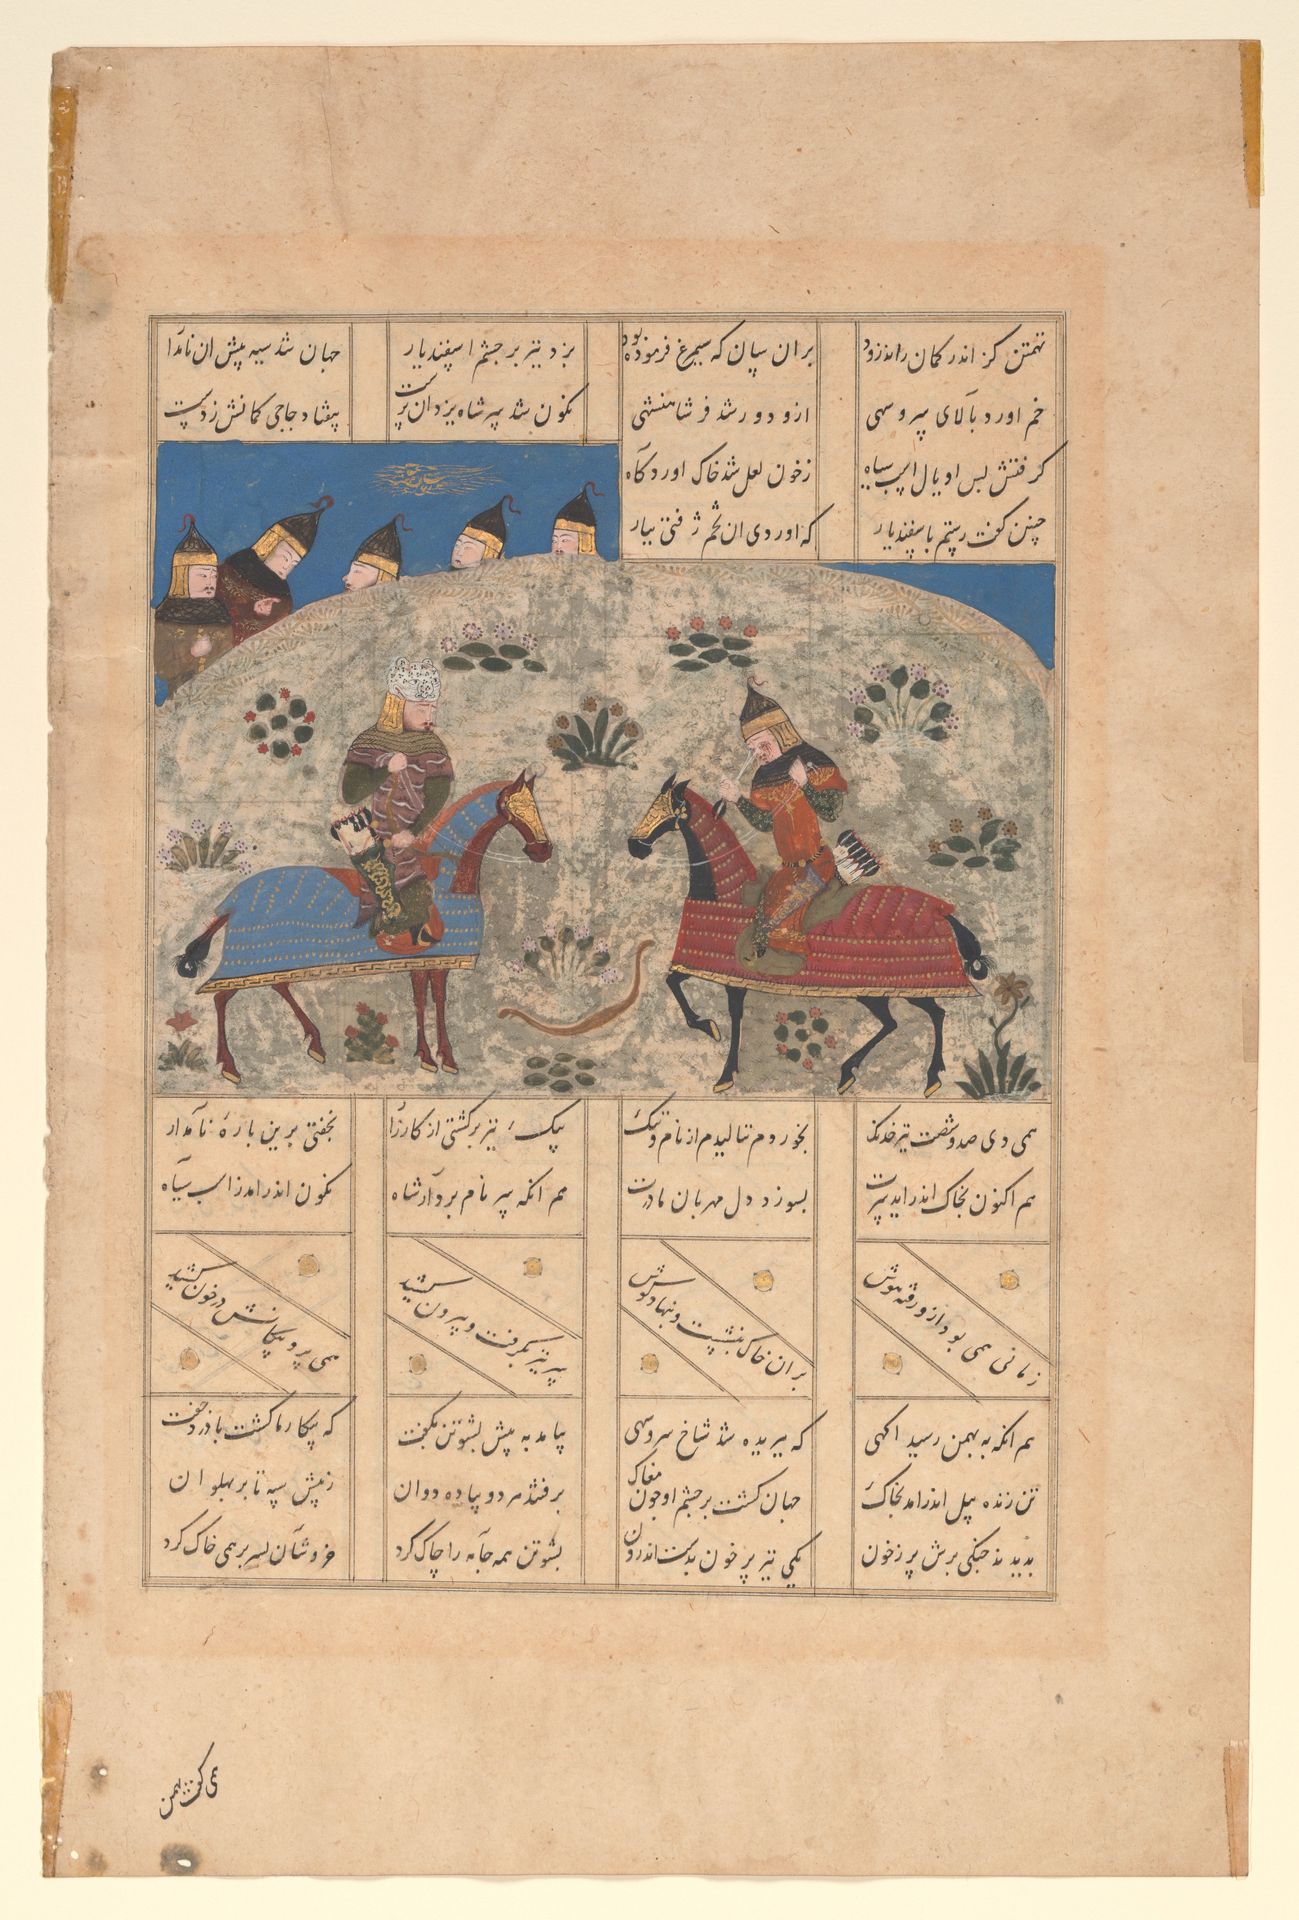 تهمتن گز اندر کمان راند زود بران سان که سیمرغ فرموده بود بزد تیر بر چشم اسفندیار جهان شد سیه پیش ان نامدا
خم اورد بالای سرو سهی ازو دور شد فر شاهنشهی نکون شد سر شاه یزدان پرست بیفتاد جاجی کمانش زدست
کرفتش بس او یال اسب سیاه زخون لعل شد خاک اوردکاه
چنین کفت رستم باسفندیار که اوردی ان تخم زفتی ببار
همی دی صد و شصت تیر خدنک بخوردم ننالیدم از نام و ننک بیک تیر برکشتی از کارزا بخفتی برین بارهٔ نامدار
هم اکنون بخاک اندر اید سرت بسوزد دل مهربان مادرت هم انکه سر نام بردار شاه نکون اندر امد ز اسب سیاه
زمانی همی بود ازو رفته هوش بران خاک بنشست و بنهاد کوش سر تیر بکرفت و بیرون کشید همی پر و پیکانش در خون کشید
هم انکه به بهمن رسید اکهی که ببریده شد شاخ سرو سهی بیامد به پیش بشوتن بکفت که پیکار ما کشت با درد جفت
تن زنده پیل اندر امد بخاک جهان کشت بر چشم او جون مغاک برفتند هر دو پیاده دوان زپیش سپه تا بر پهلوان
بدیدند جنکی برش پر زخون یکی تیر پر خون بدست اندرون بشوتن همه جامه را چاک کرد خروشان بسر بر همی خاک کرد
همی کفت بهمن